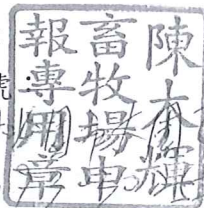 陳輝
畜牧場申
報專用章